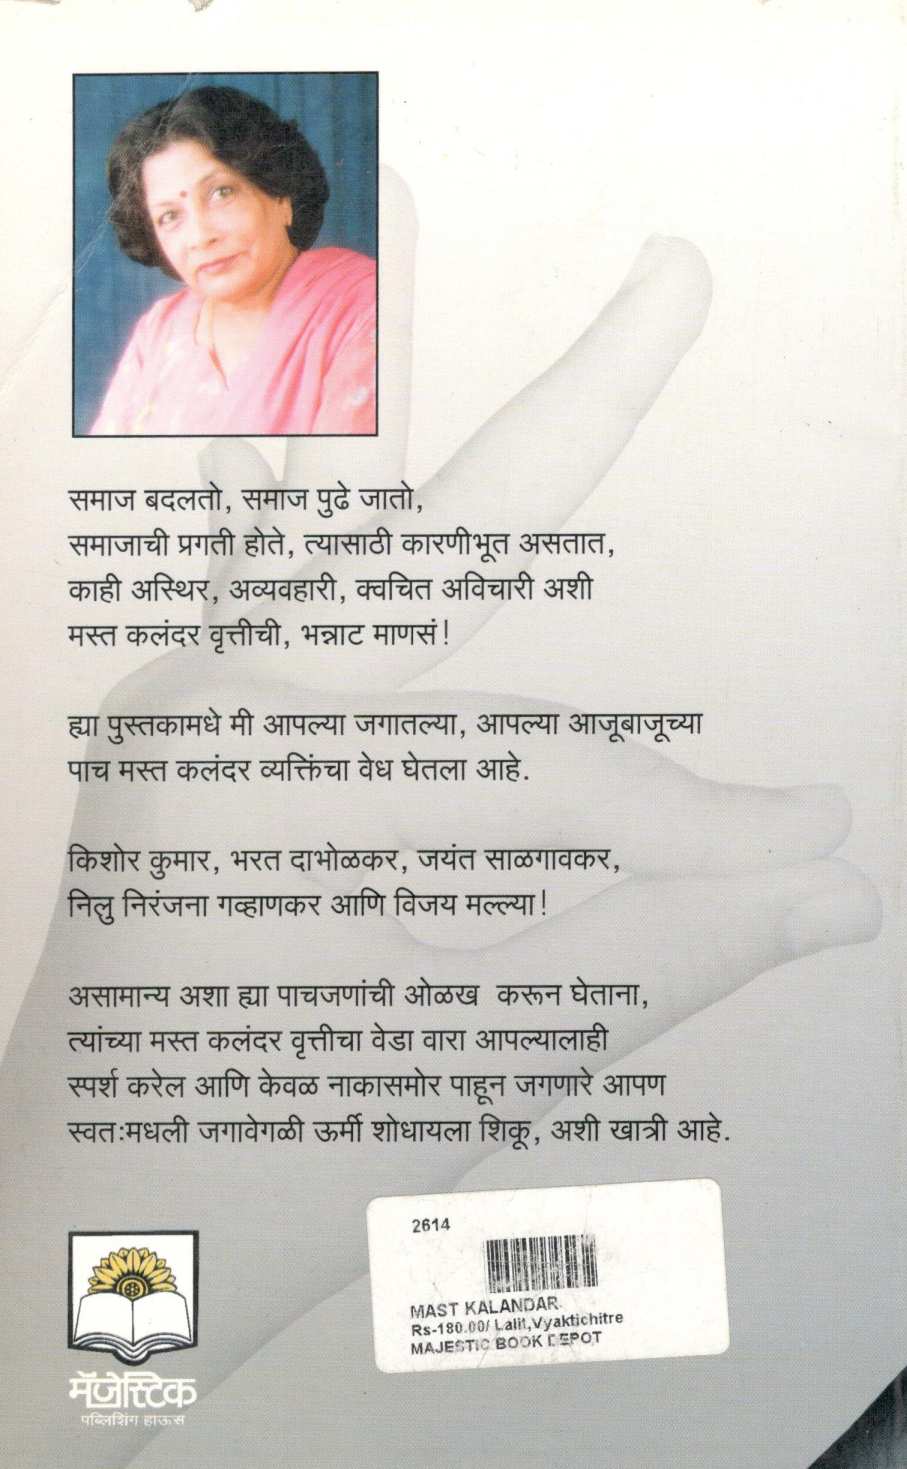 समाज बदलतो, समाज पुढे जातो,
समाजाची प्रगती होते, त्यासाठी कारणीभूत असतात,
काही अस्थिर, अव्यवहारी, क्वचित अविचारी अशी
मस्त कलंदर वृत्तीची, भन्नाट माणसं!
ह्या पुस्तकामधे मी आपल्या जगातल्या, आपल्या आजूबाजूच्या
पाच मस्त कलंदर व्यक्तिंचा वेध घेतला आहे.
किशोर कुमार, भरत दाभोळकर, जयंत साळगावकर,
निलु निरंजना गव्हाणकर आणि विजय मल्ल्या!
असामान्य अशा ह्या पाचजणांची ओळख करून घेताना,
त्यांच्या मस्त कलंदर वृत्तीचा वेडा वारा आपल्यालाही
स्पर्श करेल आणि केवळ नाकासमोर पाहून जगणारे आपण
स्वतःमधली जगावेगळी ऊर्मी शोधायला शिकू, अशी खात्री आहे.
2614
MAST KALANDAR.
Rs-180.00/ Lalit,Vyaktichitre
MAJESTIC BOOK DEPOT
मॅजेस्टिक
पब्लिशिंग हाऊस